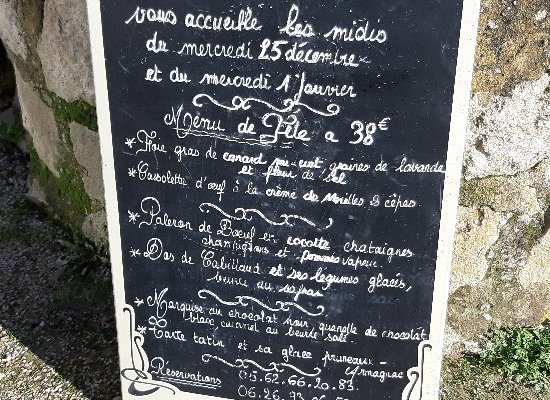 vous accueille les midis
du mercredi 25 décembre
et du mercredi 1er Janvier
Menu de Fête a 38€
*Foie gras de canard mi-cuit graines de lavande
et fleur de sel
*Cassolette d'œuf à la crème de Morilles & cèpes
*Paleron de Bœuf en cocotte chataignes
champignons et pommes vapeur
*Dos de Cabillaud et ses légumes glacés,
beurre au safran
*Marquise au chocolat noir quenelle de chocolat
blanc, caramel au beurre salé.
*Tarte tatin et sa glace pruneaux-
Armagnac
Réservations 05.62.66.20.83.
06.26.93.